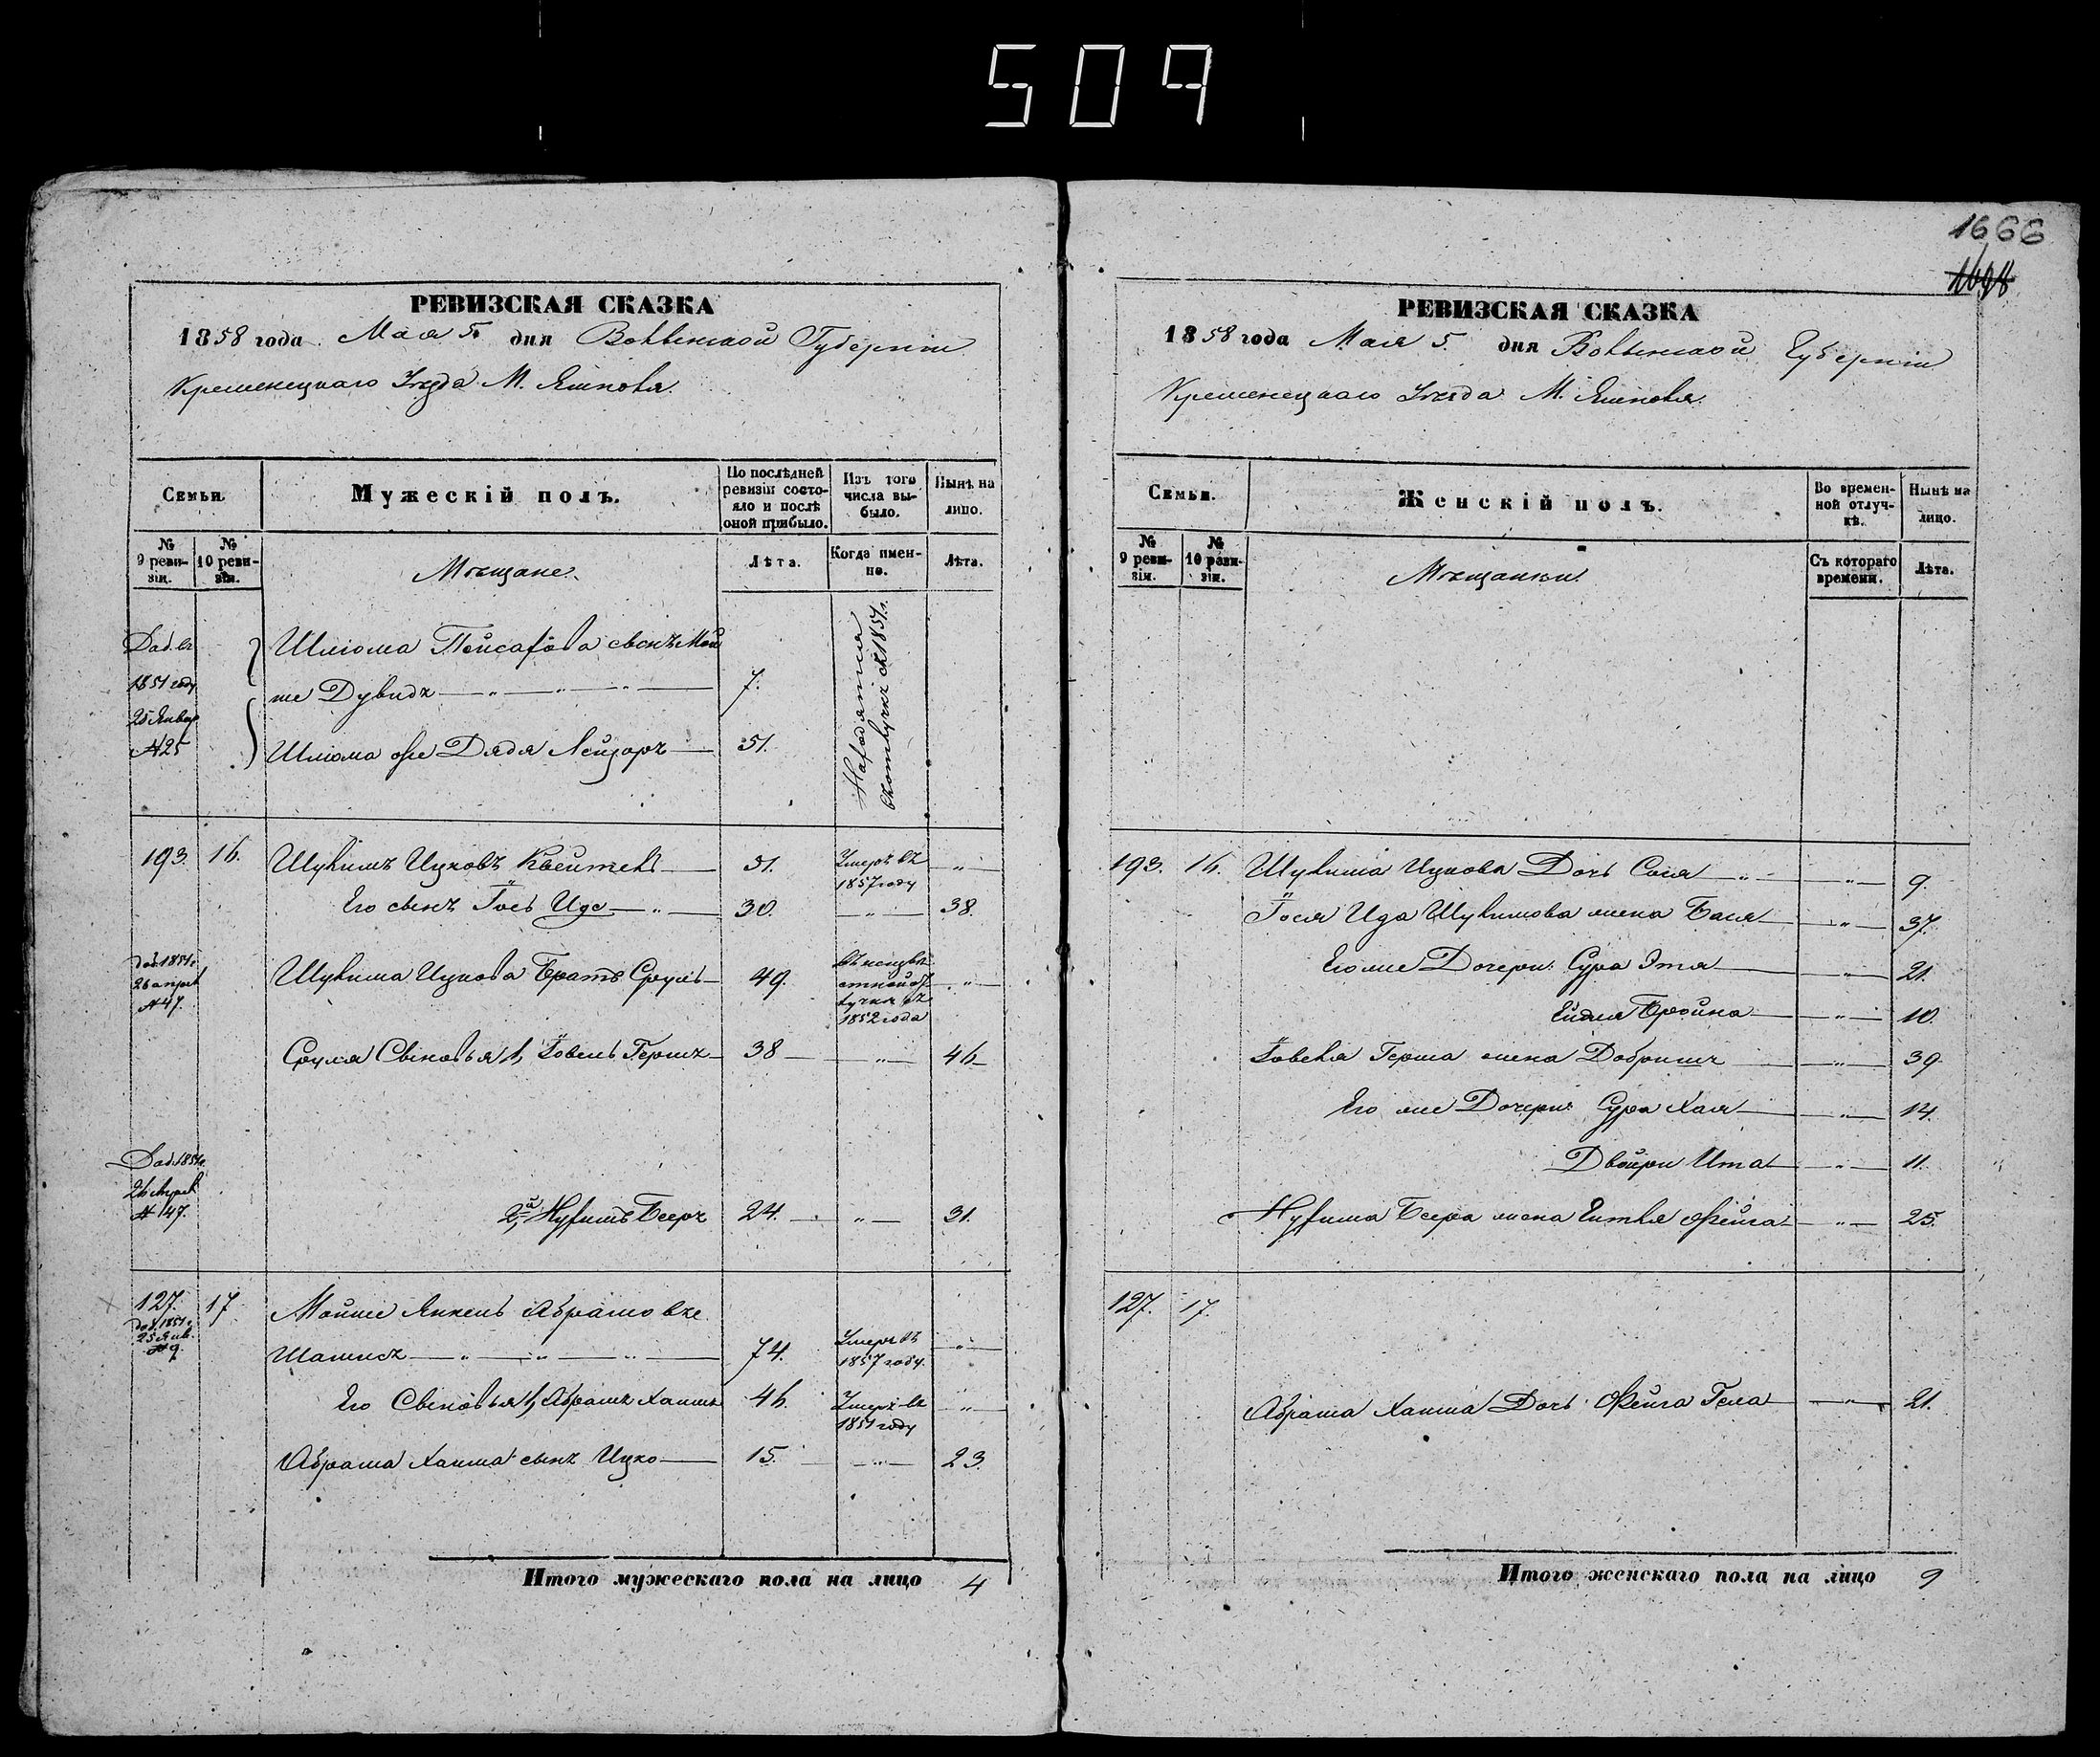 509
РЕВИЗСКАЯ СКАЗКА
1858 года Мая 5 дня Волынской Губерніи
Кременецкаго Уѣзда М. Ямполя
Семьи.
Мужескій полъ.
По послѣдней ревизіи состояло и послѣ оной прибыло.
Изъ того числа выбыло.
Нынѣ на лицо.
№ 9 ревизіи.
№ 10 ревизіи.
Мѣщане.
Лѣта.
Когда именно.
Лѣта.
Доб. въ
1851 году
25 Январ
№ 25
Шлiома Пейсахова сынъ Мой
ше Дувидъ 7.
Шлiома же Дядя Лейзоръ 51.
отлучкѣ съ 1851 г.
193. 16. Шулимъ Ицковъ 51. Умеръ въ 1857 году
Его сынъ Іось Идо 30. 38.
доб. 1851 г. 26 апрел № 47. Шулима Ицкова Братъ Сруль 49. въ неизвѣстной отлучкѣ съ 1852 года
Сруля Сыновья 1, Іовель Гершъ 38 46
Доб. 1851 г. 26 Апрел № 47. 2й, Нухимъ Бееръ 24. 31.
127. 17 Мойше Янкель Абрамовъ
доб. 1851 г. 25 Янв. № 9.
74. Умеръ въ 1857 году.
Его Сыновья 1, Абрамъ Хаимъ 46. Умеръ въ 1851 году
Абрама Хаима сынъ Ицко 15. 23.
Итого мужескаго пола на лицо 4
1666
РЕВИЗСКАЯ СКАЗКА
1858 года Мая 5. дня Волынской Губерніи
Кременецкаго Уѣзда М. Ямполя
Семьи.
Женскій полъ.
Во временной отлучкѣ.
Нынѣ на лицо.
№ 9 ревизіи.
№ 10 ревизіи.
Мѣщанки.
Съ котораго времени.
Лѣта.
193. 16. Шулима Ицкова Дочь Сося 9.
Іося Ида Шулимова жена Бася 37.
Его же Дочери Сура Этя 21.
Бройна 10.
Іовеля Герша жена Добришъ 39.
Его же Дочери Сура Хая 14.
Двойри Ита 11.
Нухима Беера жена Ентля Фейга 25.
127. 17.
Абрама Хаима Дочь Фейга Гела 21.
Итого женскаго пола на лицо 9